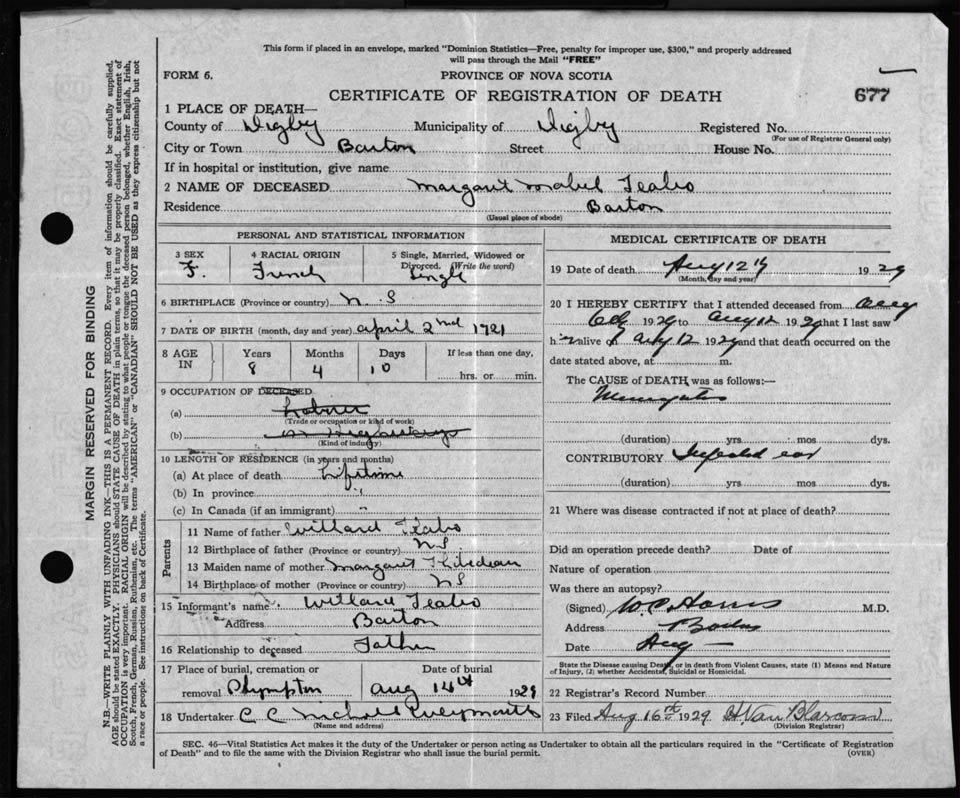 This form if placed in an envelope, marked "Dominion Statistics—Free, penalty for improper use, $300," and properly addressed
will pass through the Mail "FREE"
FORM 6.
PROVINCE OF NOVA SCOTIA
CERTIFICATE OF REGISTRATION OF DEATH
677
1 PLACE OF DEATH—
County of Digby Municipality of Digby Registered No.
(For use of Registrar General only)
City or Town Barton Street House No.
If in hospital or institution, give name
2 NAME OF DECEASED Margaret Mabel
Residence Barton
(Usual place of abode)
PERSONAL AND STATISTICAL INFORMATION
3 SEX 4 RACIAL ORIGIN 5 Single, Married, Widowed or Divorced. (Write the word)
F. French Single
6 BIRTHPLACE (Province or country) N. S
7 DATE OF BIRTH (month, day and year) April 2nd 1921
8 AGE IN Years Months Days If less than one day,
8 4 10 hrs. or min.
9 OCCUPATION OF DECEASED
(a) Laborer
(Trade or occupation or kind of work)
(b) Highways
(Kind of industry)
10 LENGTH OF RESIDENCE (in years and months)
(a) At place of death Lifetime
(b) In province "
(c) In Canada (if an immigrant) "
Parents
11 Name of father Willard
12 Birthplace of father (Province or country) NS
13 Maiden name of mother Margaret Thibideau
14 Birthplace of mother (Province or country) NS
15 Informant's name Willard
Address Barton
16 Relationship to deceased Father
17 Place of burial, cremation or removal Plympton
Date of burial Aug 14th 1929
18 Undertaker C C Weymouth
(Name and address)
MEDICAL CERTIFICATE OF DEATH
19 Date of death Aug 12th 1929
(Month, day and year)
20 I HEREBY CERTIFY that I attended deceased from Aug
1929 to Aug 12 1929 that I last saw
h er alive on Aug 12 1929 and that death occurred on the
date stated above, at m.
The CAUSE of DEATH was as follows:—
(duration) yrs. mos dys.
CONTRIBUTORY Infected ear
(duration) yrs. mos. dys.
21 Where was disease contracted if not at place of death?
Did an operation precede death? Date of
Nature of operation
Was there an autopsy?
(Signed) M.D.
Address Barton
Date Aug
State the Disease causing Death, or in death from Violent Causes, state (1) Means and Nature
of Injury, (2) whether Accidental, Suicidal or Homicidal.
22 Registrar's Record Number
23 Filed Aug 16 1929 H Van Blarcom
(Division Registrar)
SEC. 46—Vital Statistics Act makes it the duty of the Undertaker or person acting as Undertaker to obtain all the particulars required in the "Certificate of Registration
of Death" and to file the same with the Division Registrar who shall issue the burial permit.
(OVER)
MARGIN RESERVED FOR BINDING
N.B.—WRITE PLAINLY WITH UNFADING INK—THIS IS A PERMANENT RECORD. Every item of information should be carefully supplied.
AGE should be stated EXACTLY. PHYSICIANS should STATE CAUSE OF DEATH in plain terms, so that it may be properly classified. Exact statement of
OCCUPATION is very important. RACIAL ORIGIN will be described by stating to what people or tongue the deceased person belonged, whether English, Irish,
Scotch, French, German, Russian, Ruthenian, etc. The terms "AMERICAN" or "CANADIAN" SHOULD NOT BE USED as they express citizenship but not
a race or people. See instructions on back of Certificate.